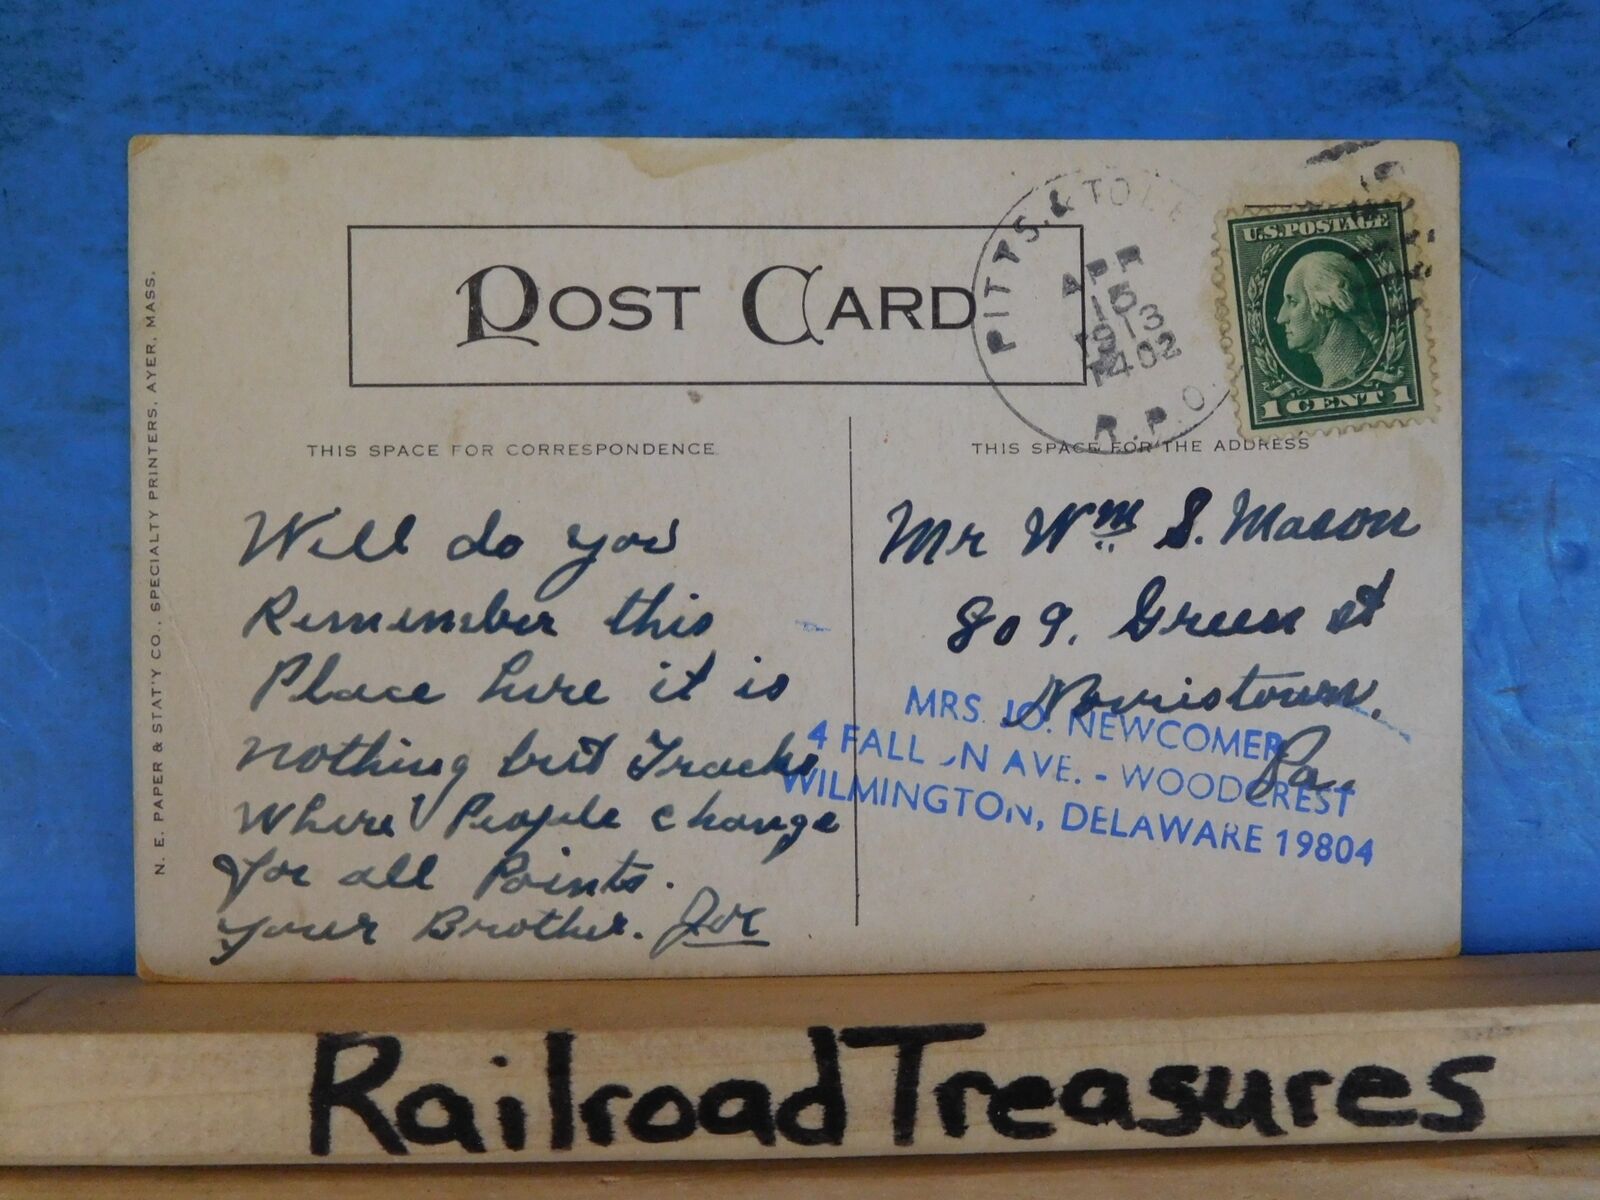 POST CARD
PITTS. & TOLE
APR
15
1913
402
R.P.O.
U.S. POSTAGE
1 CENT 1
THIS SPACE FOR CORRESPONDENCE
THIS SPACE FOR THE ADDRESS
N. E. PAPER & STAT'Y CO., SPECIALTY PRINTERS, AYER, MASS.
Will do you
Remember this
Place here it is
nothing but Tracks
Where People change
for all Points.
Your Brother. Joe
Mr Wm S. Mason
809. Green st
Norristown.
Pa.
MRS. JO. NEWCOMER
4 FALLON AVE. - WOODCREST
WILMINGTON, DELAWARE 19804
RailroadTreasures